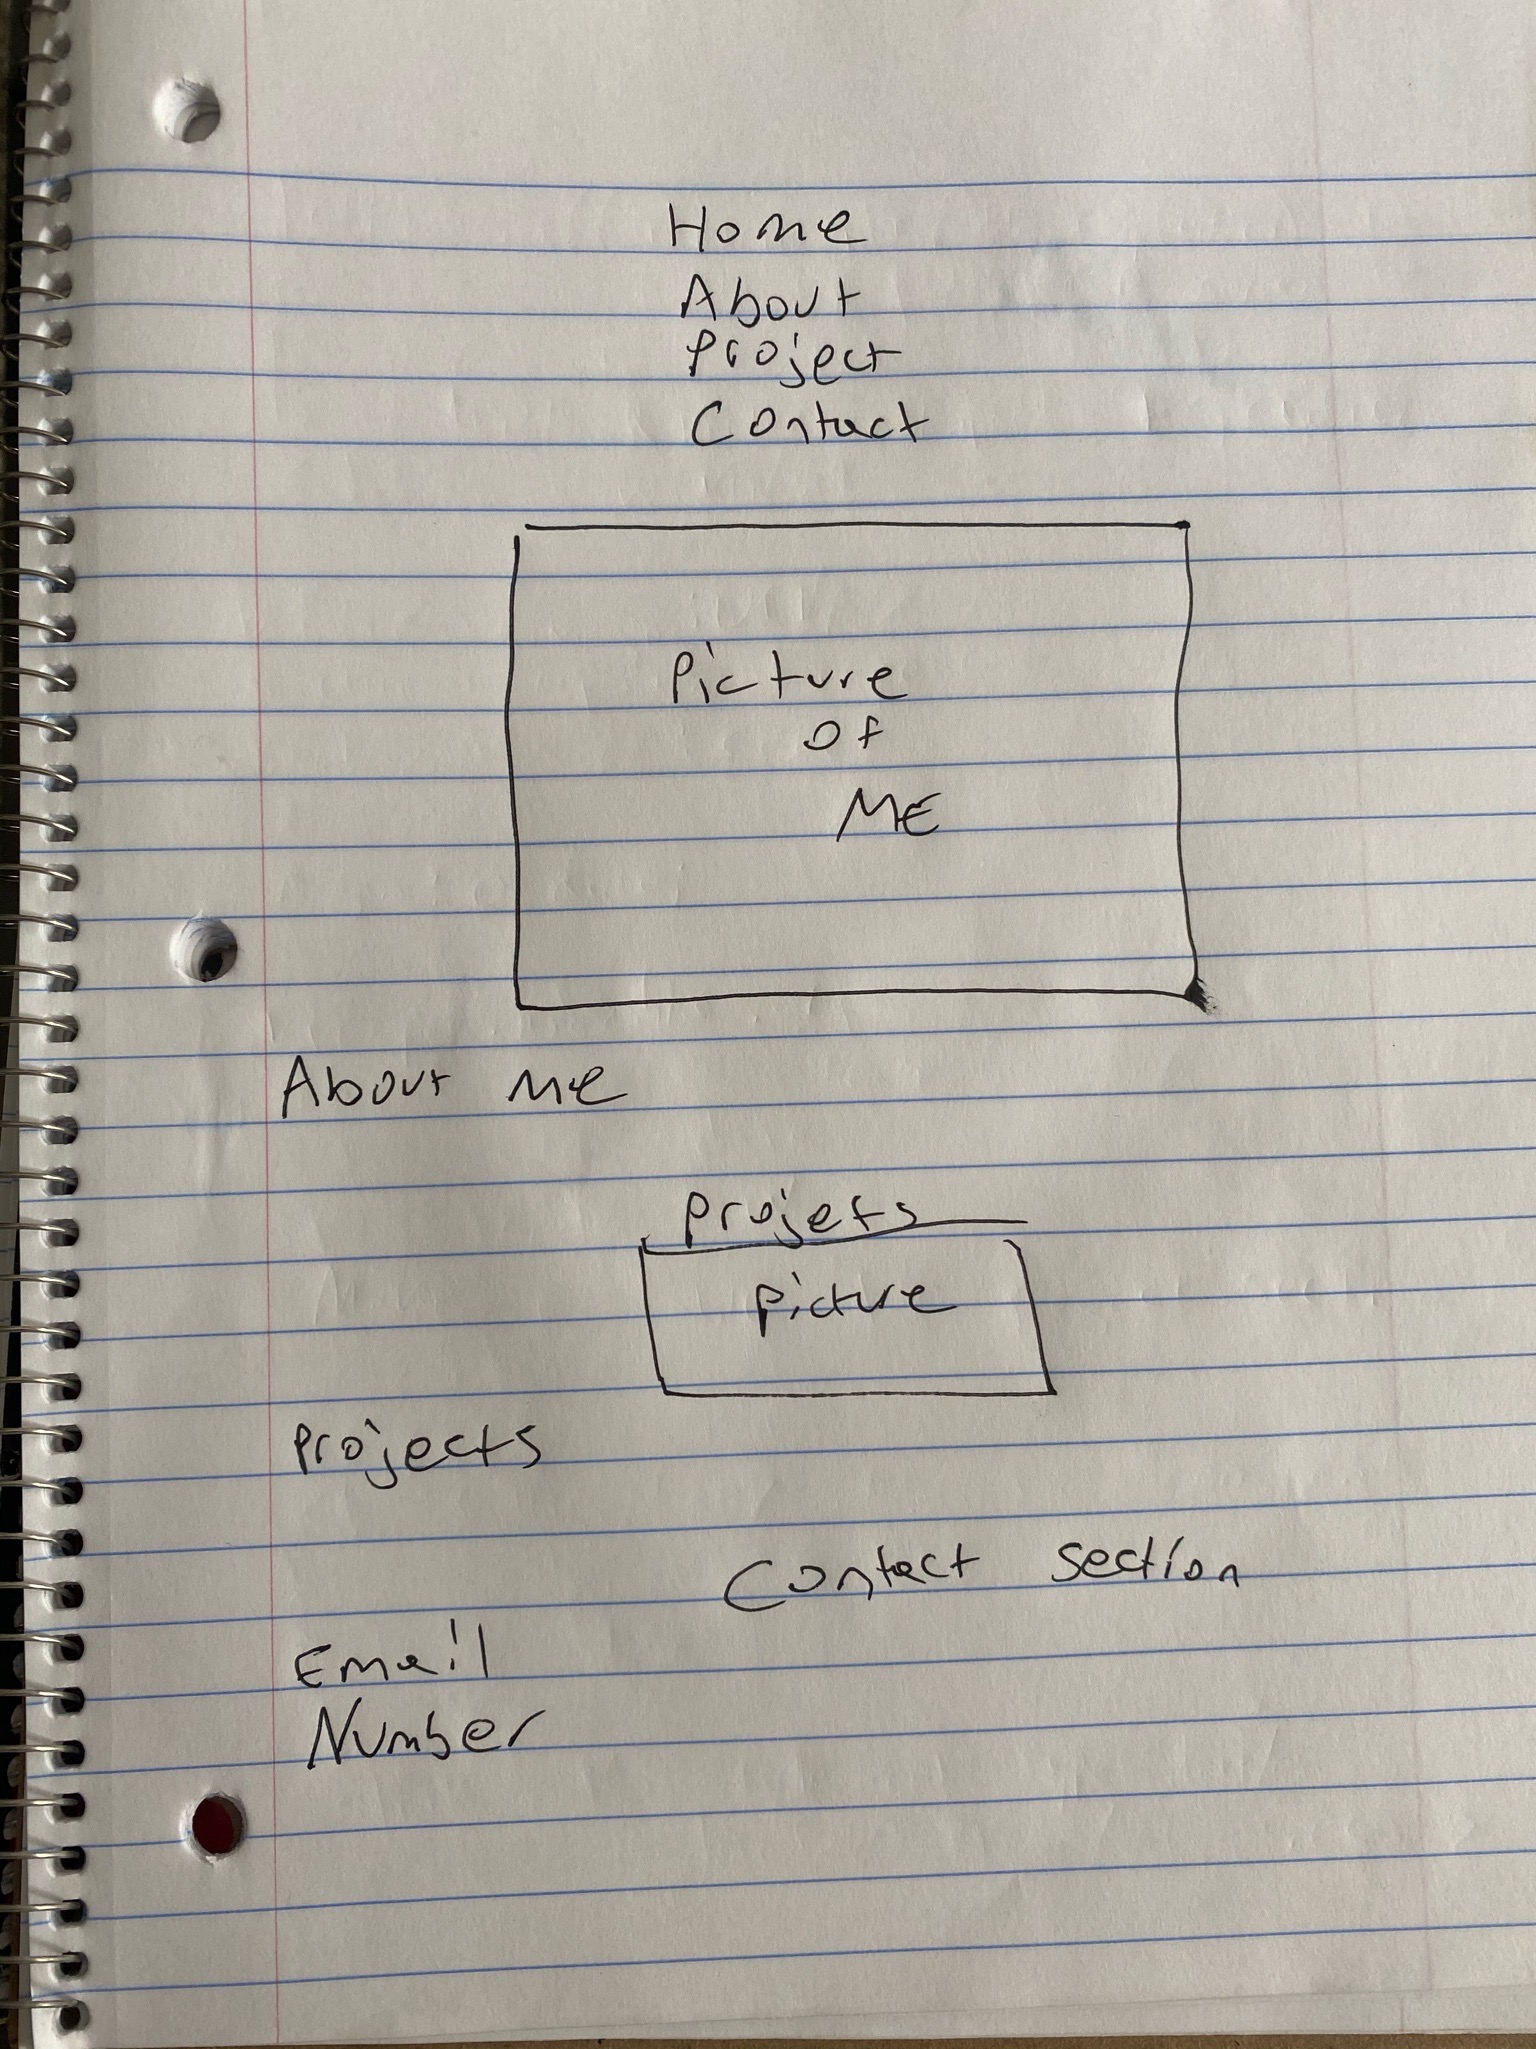 Home
About
Project
Contact
Picture
of
ME
About me
Projets
Picture
Projects
Contact section
Email
Number